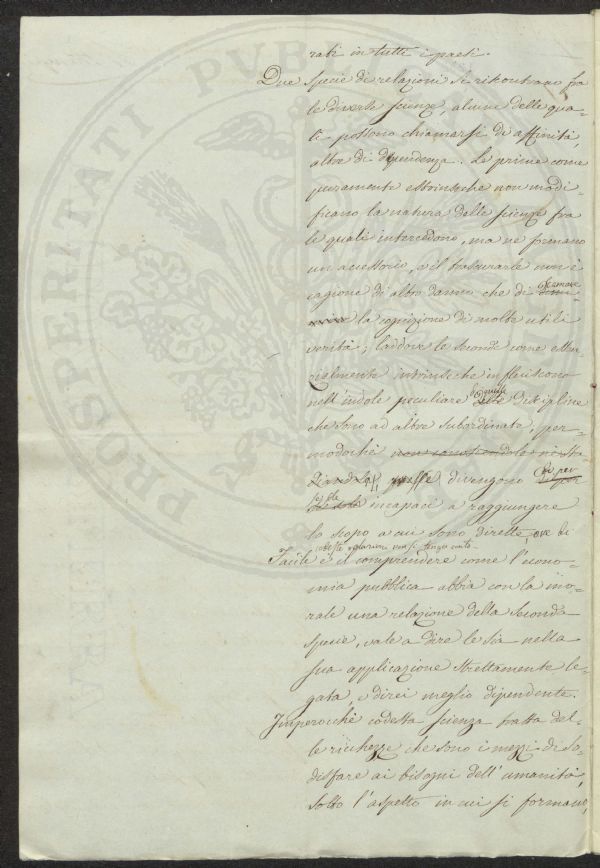 rati in tutti i paesi.
Due specie di relazioni si riscontrano fra
le diverse scienze, alcune delle qua-
li possono chiamarsi di affinità,
altre di dipendenza. Le prime come
puramente estrinseche non modi-
ficano la natura delle scienze fra
le quali intercedono, ma ne formano
un accessorio, e il trascurarle non è
cagione di altro danno che di scemare
la cognizione di molte utili
verità; laddove le seconde come essen-
zialmente intrinseche influiscono
nell'indole peculiare di quelle discipline
che sono ad altre subordinate, per-
modochè
divengono di per
se sole incapaci a raggiungere
lo scopo a cui sono dirette, ove di
codeste relazioni non si tenga conto.
Facile è il comprendere come l'econo-
mia pubblica abbia con la mo-
rale una relazione della seconda
specie, vale a dire le sia nella
sua applicazione strettamente le-
gata, e direi meglio dipendente.
Imperocchè codesta scienza tratta del-
le ricchezze che sono i mezzi di so-
disfare ai bisogni dell'umanità,
sotto l'aspetto in cui si formano,
PROSPERITATI PUBLICAE